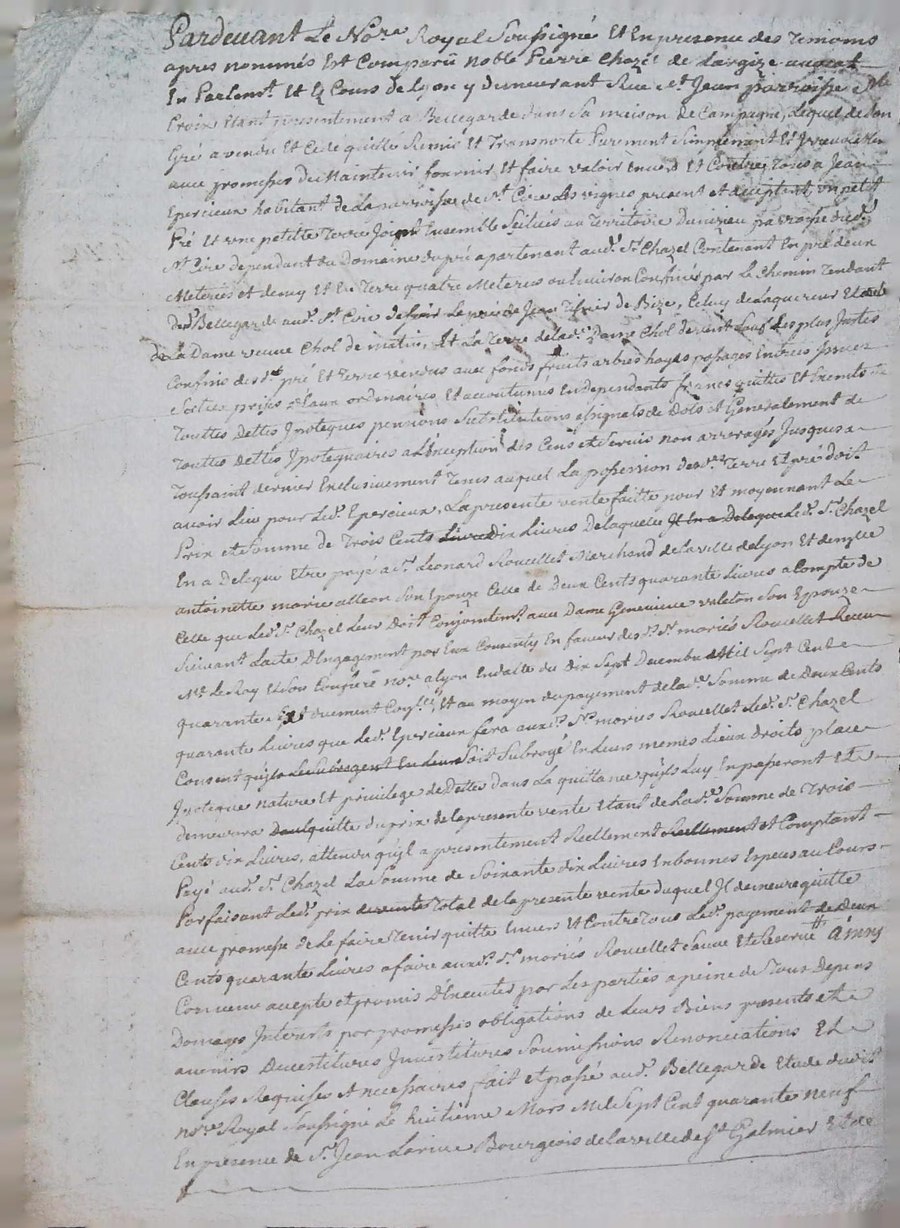 Pardevant Le No.re Royal Soussigné Et En presence des Temoins
apres nommés Est Comparü noble Pierre Chazel de Largize avocat
En Parlem.t Et Es Cours de Lyon y demeurant Rue St Jean parroisse Ste
Croix Etant presentement a Bellegarde dans Sa maison de Campagne, Lequel de Son
Gré a vendu Et Cede quitté Remis Et Transporté Purement Simplement Et
avec promesses de Maintenir fournir Et faire valoir Envers Et Contre Tous a Jean
Epercieux habitant de La parroisse de St Cire Les vignes present et acceptant un petit
Pré Et une petite Terre Joints Ensemble Scitués au Territoire du parroisse dud.t
St Cire dependant du Domaine du pré apartenant aud. Sr Chazel Contenant En pré deux
Meterées et demy Et En Terre quatre Meterées ou Environ Confinés par Le Chemin Tendant
de Bellegarde aud. St Cire de Le pré de Jean de Bize, Celuy de Laquereur Et
de La Dame veuve Chol de matin, Et La Terre de lad.e Dame Chol de vent Sauf Les plus Justes
Confins desd.ts pré Et Terre vendus avec fonds fruits arbres hayes passages Entrées
Sorties prises d'Eaux ordinaires Et accoutumés Independents francs quittes Et Exempts de
Touttes Dettes Ipoteques pensions Substitutions de Dots et Generalement de
Touttes Dettes Ipotequaires a L'Exception des Cens et Servis non arreragés Jusques a
Toussaint dernier Exclusivement Tems auquel La possession desd.ts Terre Et pré doit
avoir Lieu pour Led. Epercieux, La presente vente faitte pour Et moyennant Le
Prix et Somme de Trois Cents dix Livres de laquelle Il En a Delegué Led. Sr Chazel
En a Delegué Etre payé a Sr Leonard Rouellet Marchand de La ville de Lyon Et demlle
antoinette marie alleon Son Epouze Celle de Deux Cents quarante Livres a Compte de
Celle que Led. Sr Chazel Leur Doit Conjointem.t avec Dame Genevieve valeton Son Epouze
Suivant L'acte D'Engagement par Eux Consenty En faveur desd. Sr mariés Rouellet Receu
Me Le Roy Et Son Confrere no.re a Lyon En datte du dix Sept Decembre Mil Sept Cents
quarante Et au moyen du payement de lad.e Somme de Deux Cents
quarante Livres que Led. Epercieux fera auxd. Srs mariés Rouellet Led. Sr Chazel
Consent Soit Subrogé En Leurs memes Lieux Droits place
Ipoteque nature Et privilege de Dettes dans La quittance quils Luy En passeront Et
demeurera quitte du prix de la presente vente Etant de Lad.e Somme de Trois
Cents dix Livres, attendu qu'il a presentement Reellement et Comptant
Payé aud. Sr Chazel La Somme de Soixante dix Livres En bonnes Especes au Cours
Parfaisant Led. prix Total de la presente vente duquel Il demeure quitte
avec promesse de Le faire Tenir quitte Envers Et Contre Tous Led. payement de Deux
Cents quarante Livres a faire auxd. Srs mariés Rouellet Sauve Et Reservé ainsy
Convenu accepté et promis D'Executer par Les parties a peine de Tous Depens
Domages Interests par promesses obligations de Leurs Biens presents et a
avenirs Devestitures Investitures Soumissions Renonciations Et
Clauses Requises et necessaires, fait et passé aud. Bellegarde Etude dud.t
no.re Royal Soussigné Le huitieme Mars Mil Sept Cent quarante neuf
En presence de Sr Jean Bourgeois de La ville de St Galmier Et de